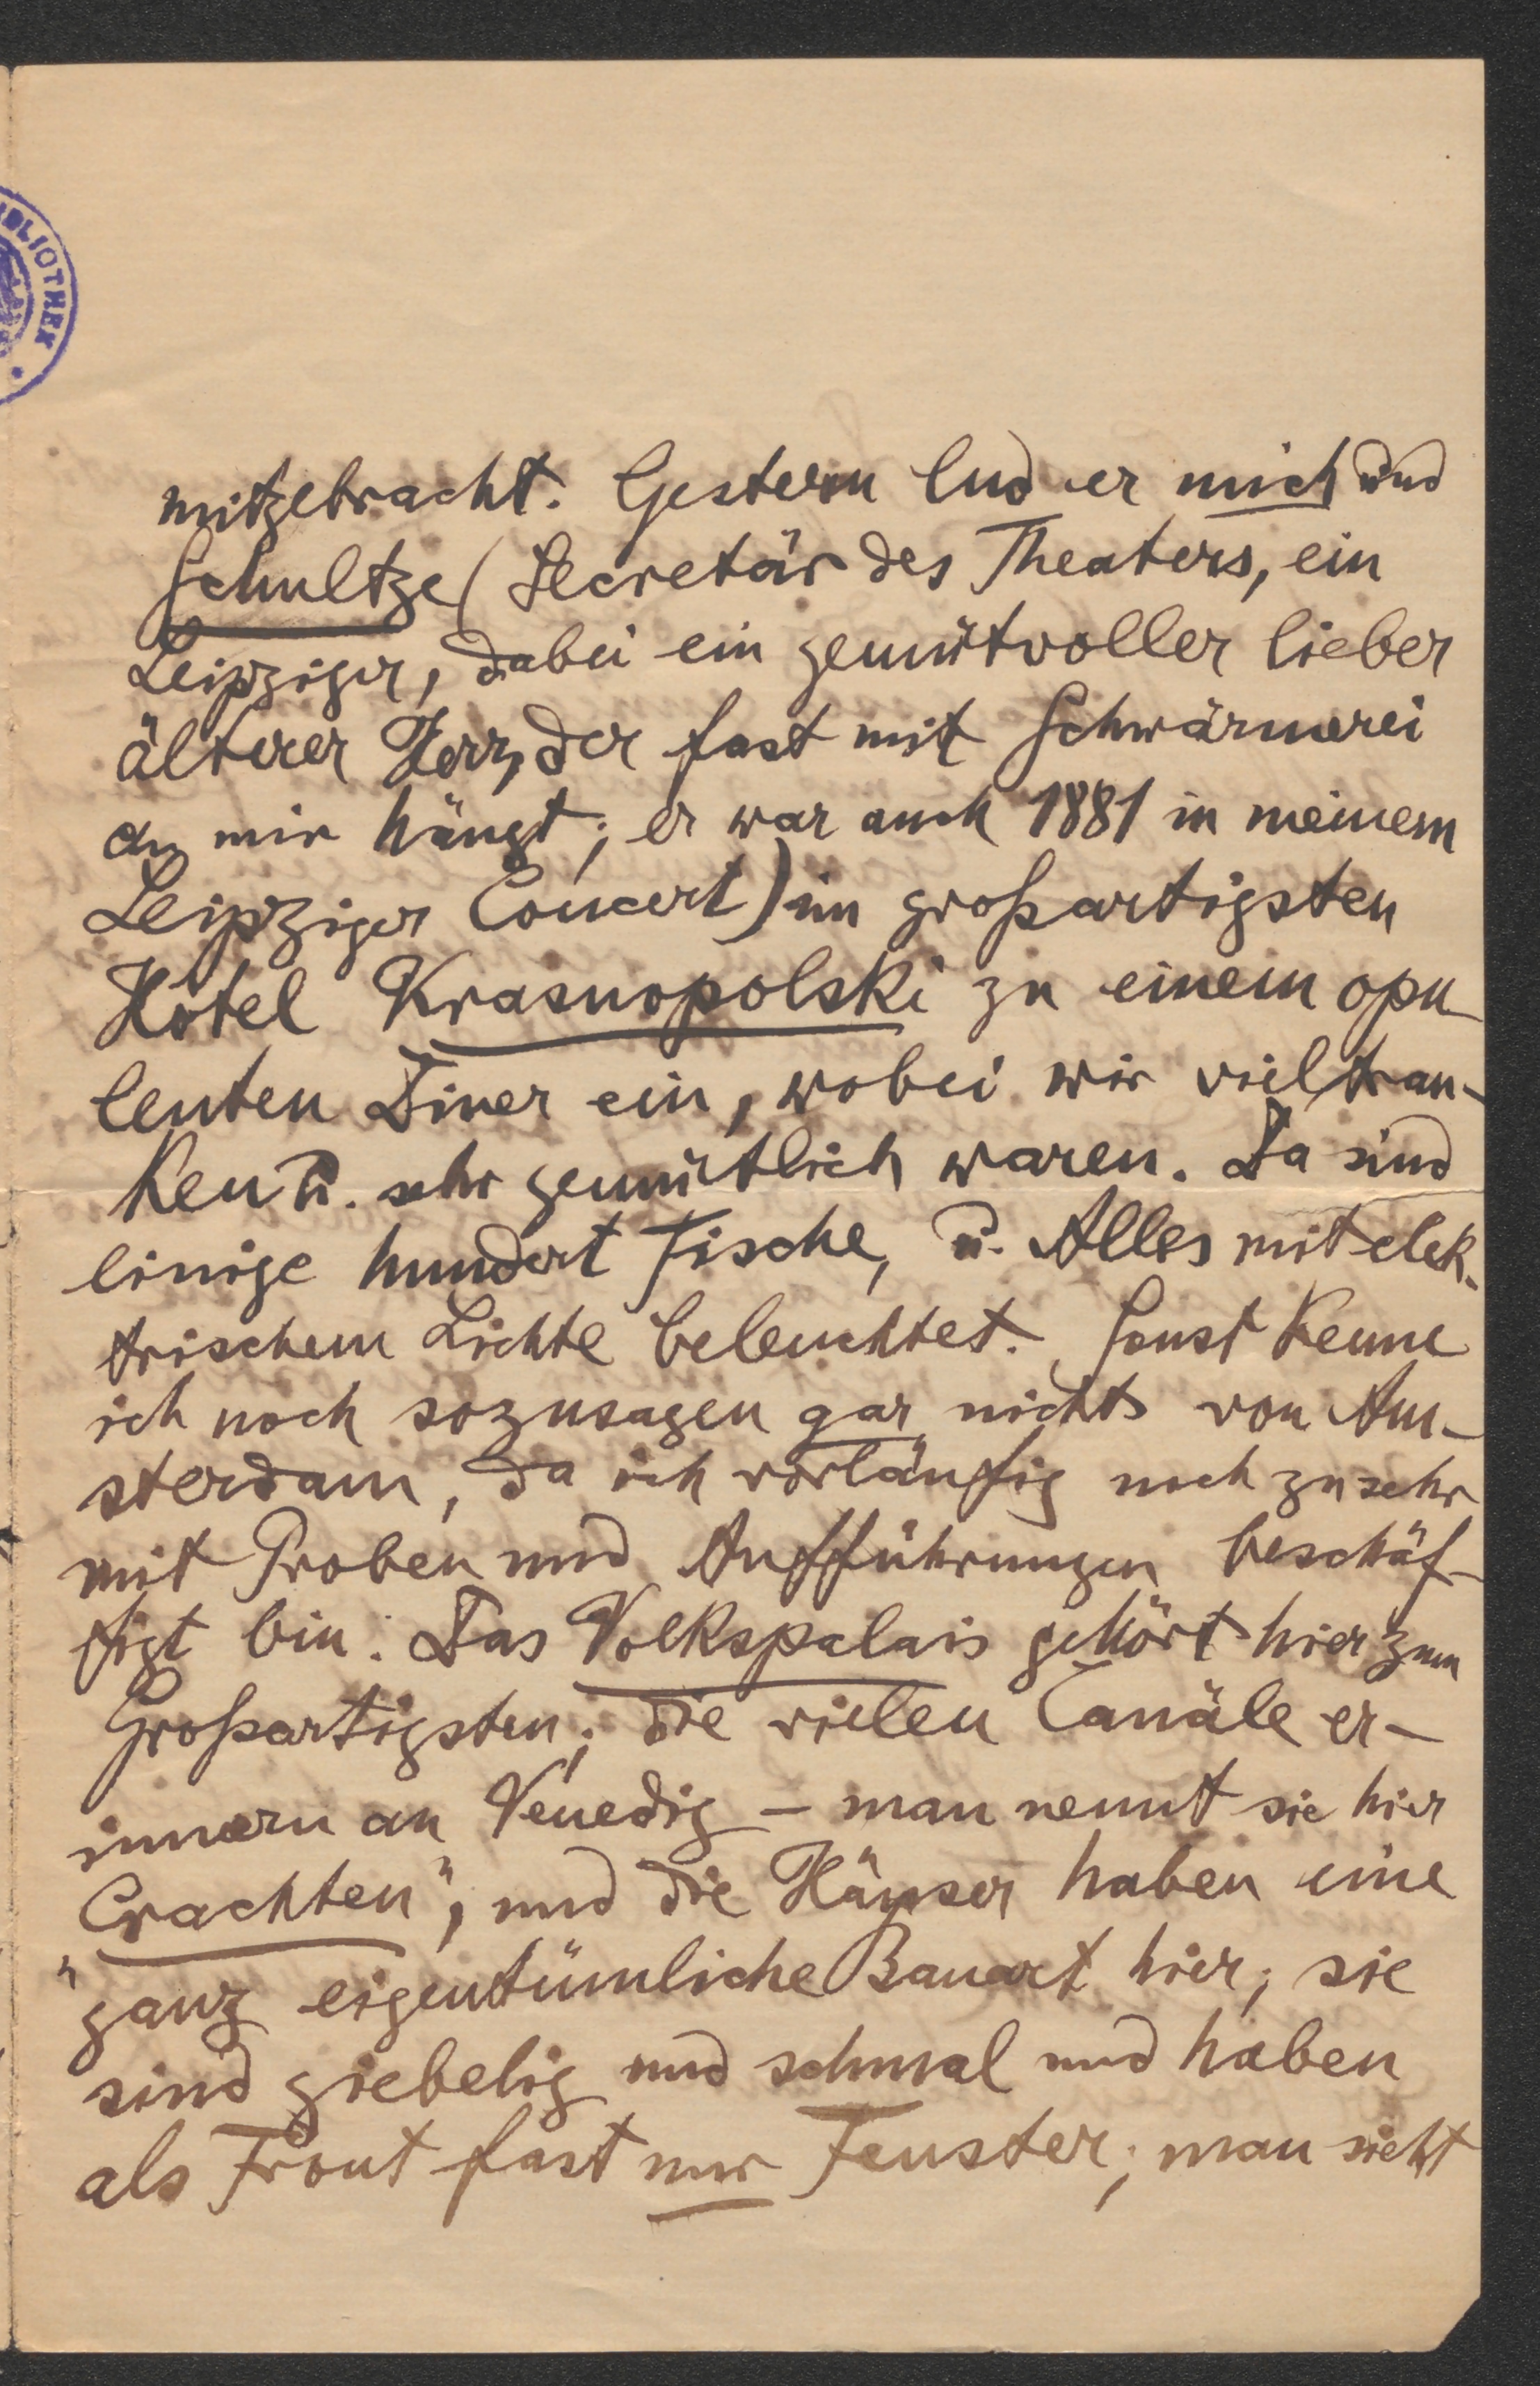 BIBLIOTHEK
mitgebracht. Gestern lud er mich und
Schultze (Secretär des Theaters, ein
Leipziger, dabei ein gemütvoller lieber
älterer Herr, der fast mit Schwärmerei
an mir hängt; er war auch 1881 in meinem
Leipziger Concert) im großartigsten
Hôtel Krasnopolski zu einem opu-
lenten Diner ein, wobei wir viel tran-
ken u. sehr gemütlich waren. Da sind
einige hundert Tische, u. Alles mit elek-
trischem Lichte beleuchtet. Sonst kenne
ich noch sozusagen gar nichts von Am-
sterdam, da ich vorläufig noch zu sehr
mit Proben und Aufführungen beschäf-
tigt bin. Das Volkspalais gehört hier zum
Großartigsten; die vielen Canäle er-
innern an Venedig – man nennt sie hier
„Crachten“, und die Häuser haben eine
ganz eigentümliche Bauart hier; sie
sind giebelig und schmal und haben
als Front fast nur Fenster; man sieht